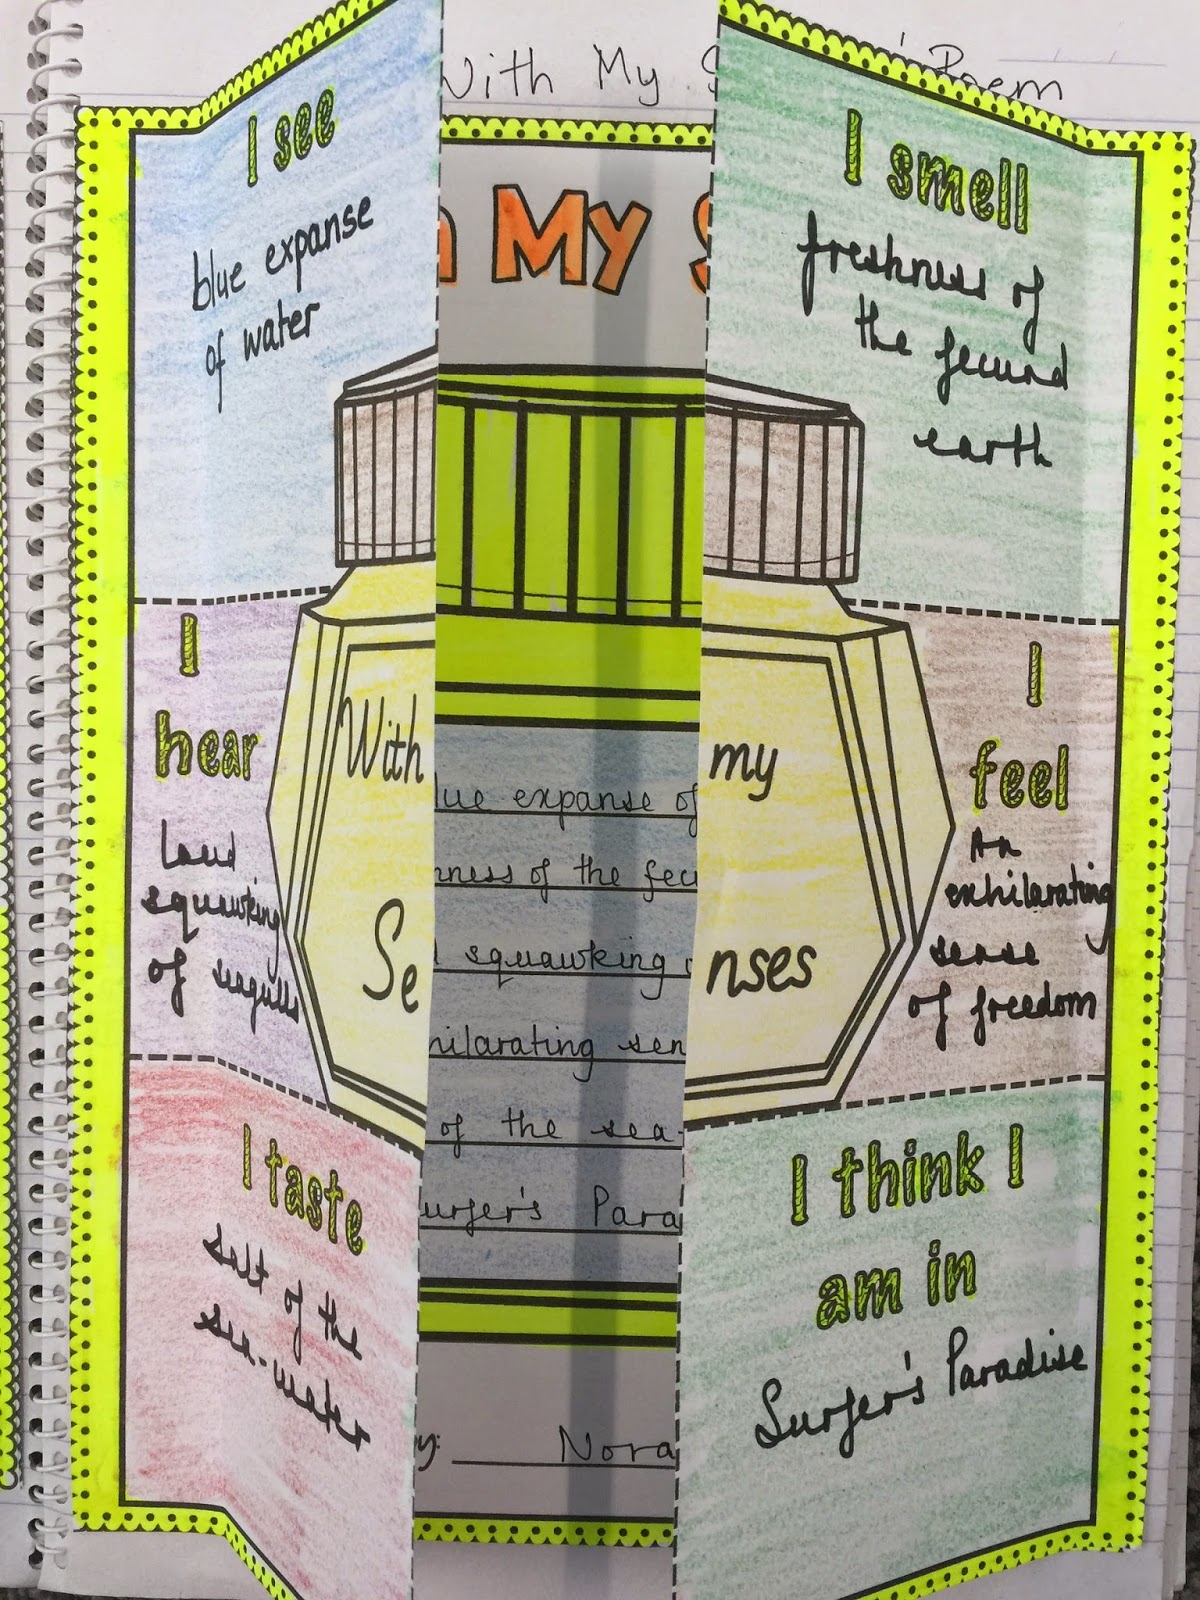 With My Poem
I see
blue expanse
of water
My
I smell
freshness of
the fecund
earth
I
hear
Loud
squawking
of seagulls
With my
Senses
lue expanse of
ness of the fec
squawking
hilarating sen
of the sea
urfer's Para
I
feel
An
exhilarating
sense
of freedom
I taste
salt of the
sea-water
I think I
am in
Surfer's Paradise
y: Nora